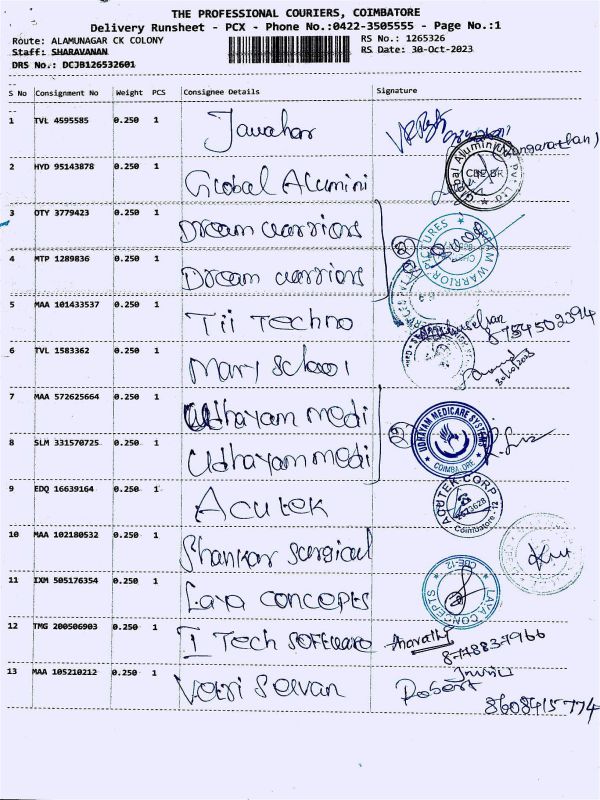 THE PROFESSIONAL COURIERS, COIMBATORE
Delivery Runsheet - PCX - Phone No.:0422-3505555 - Page No.:1
Route: ALAMUNAGAR CK COLONY RS No.: 1265326
Staff: SHARAVANAN RS Date: 30-Oct-2023
DRS No.: DCJB126532601
S No Consignment No Weight PCS Consignee Details Signature
1 TVL 4595585 0.250 1 Jawahar
2 HYD 95143878 0.250 1 Global Alumini
3 OTY 3779423 0.250 1 Dream warriors
4 MTP 1289836 0.250 1 Dream warriors 2
5 MAA 101433537 0.250 1 Tii Techno 8754502394
6 TVL 1583362 0.250 1 Mary School 30/10/2023
7 MAA 572625664 0.250 1 Udhayam medi
8 SLM 331570725 0.250 1 Udhayam medi 2 UDHAYAM MEDICARE SYSTEMS COIMBALORE
9 EDQ 16639164 0.250 1 Acutek ACUTEK CORP Coimbatore-12
10 MAA 102180532 0.250 1 Shankar Surgical
11 IXM 505176354 0.250 1 Lava concepts LAVA CONCEPTS CBE-12
12 TMG 200506903 0.250 1 I Tech software
13 MAA 105210212 0.250 1 Vetri Selvan Robert 8608415774